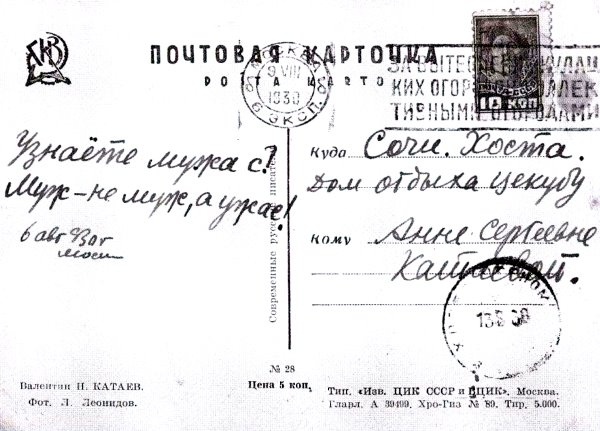 ПОЧТОВАЯ КАРТОЧКА
МОСКВА
9 VIII
1930
6 ЭКСП.
ЗА ВЫТЕСНЕНИЕ КУЛАЦ
КИХ ОГОРОДОВ КОЛЛЕК
ТИВНЫМИ ОГОРОДАМИ
10 КОП.
Узнаёте мужа с?
Муж-не муж, а ужас!
6 авг 30 г
Куда Сочи. Хоста.
Дом отдыха Цекубу
Кому Анне Сергеевне
Современные русские писатели
№ 28
Цена 5 коп.
Валентин П. КАТАЕВ.
Фот. Л. Леонидов.
Тип. «Изв. ЦИК СССР и ВЦИК», Москва.
Главл. А 39499. Хро-Гиз № 89. Тир. 5.000.